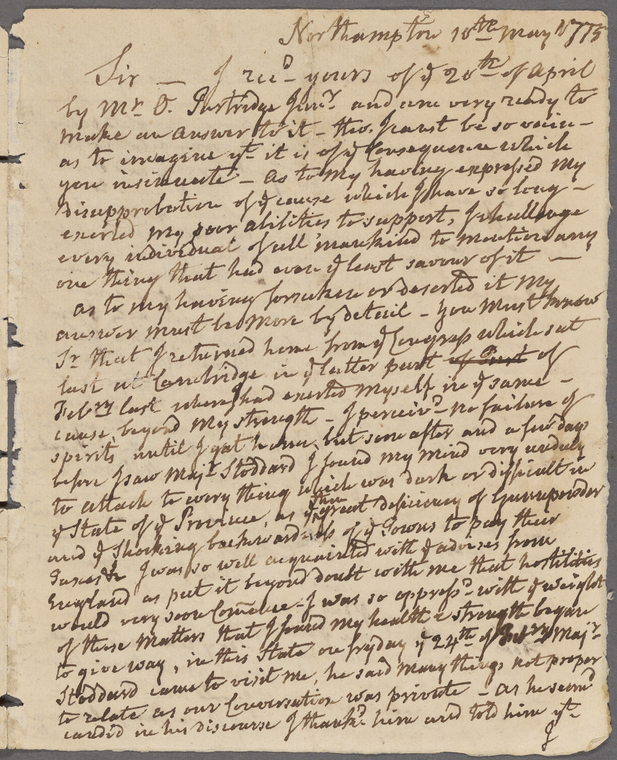 Northampton 10th May 1775
Sir — I rec'd yours of ye 20th of April
by Mr. O. Partridge Junr. and am very ready to
make an answer to it – tho. I must be so vain –
as to imagine yt it is of ye Consequence which
you insinuate – as to my having expressed my
Disapprobation of ye cause which I have so long –
exerted my poor abilities to support, I challenge
every individual of all mankind to mention any
one thing that had even ye least savour of it —
as to my having forsaken or deserted it my
answer must be more by detail – you must know
Sr. that I returned home from ye Congress which sat
last at Cambridge in ye latter part of
Febry last where I had exerted myself in ye same –
cause beyond my strength – I perceivd no failure of
spirits until I got home, but soon after and a few days
before I saw Majr. Stoddard I found my mind very unduly
to attach to every thing which was dark or difficult in
ye State of ye Province, as ye then great Deficiency of Gunpowder
and ye Shocking backwardness of ye Towns to pay their
Taxes &c I was so well acquainted with ye advices from
England as put it beyond doubt with me that hostilities
would very soon Commence – I was so oppressd with ye weight
of these Matters that I found my health & strength began
to give way, in this State on fryday ye 24th of Majr.
Stoddard came to visit me, he said many things not proper
to relate as our Conversation was private – as he seemd
candid in his discourse I thankd him and told him yt
I